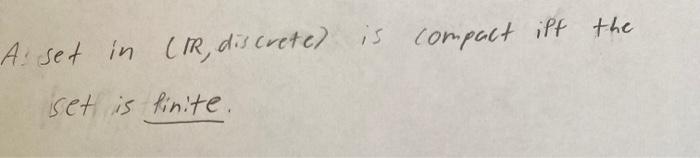 A set in (ℝ, discrete) is compact iff the
set is finite.